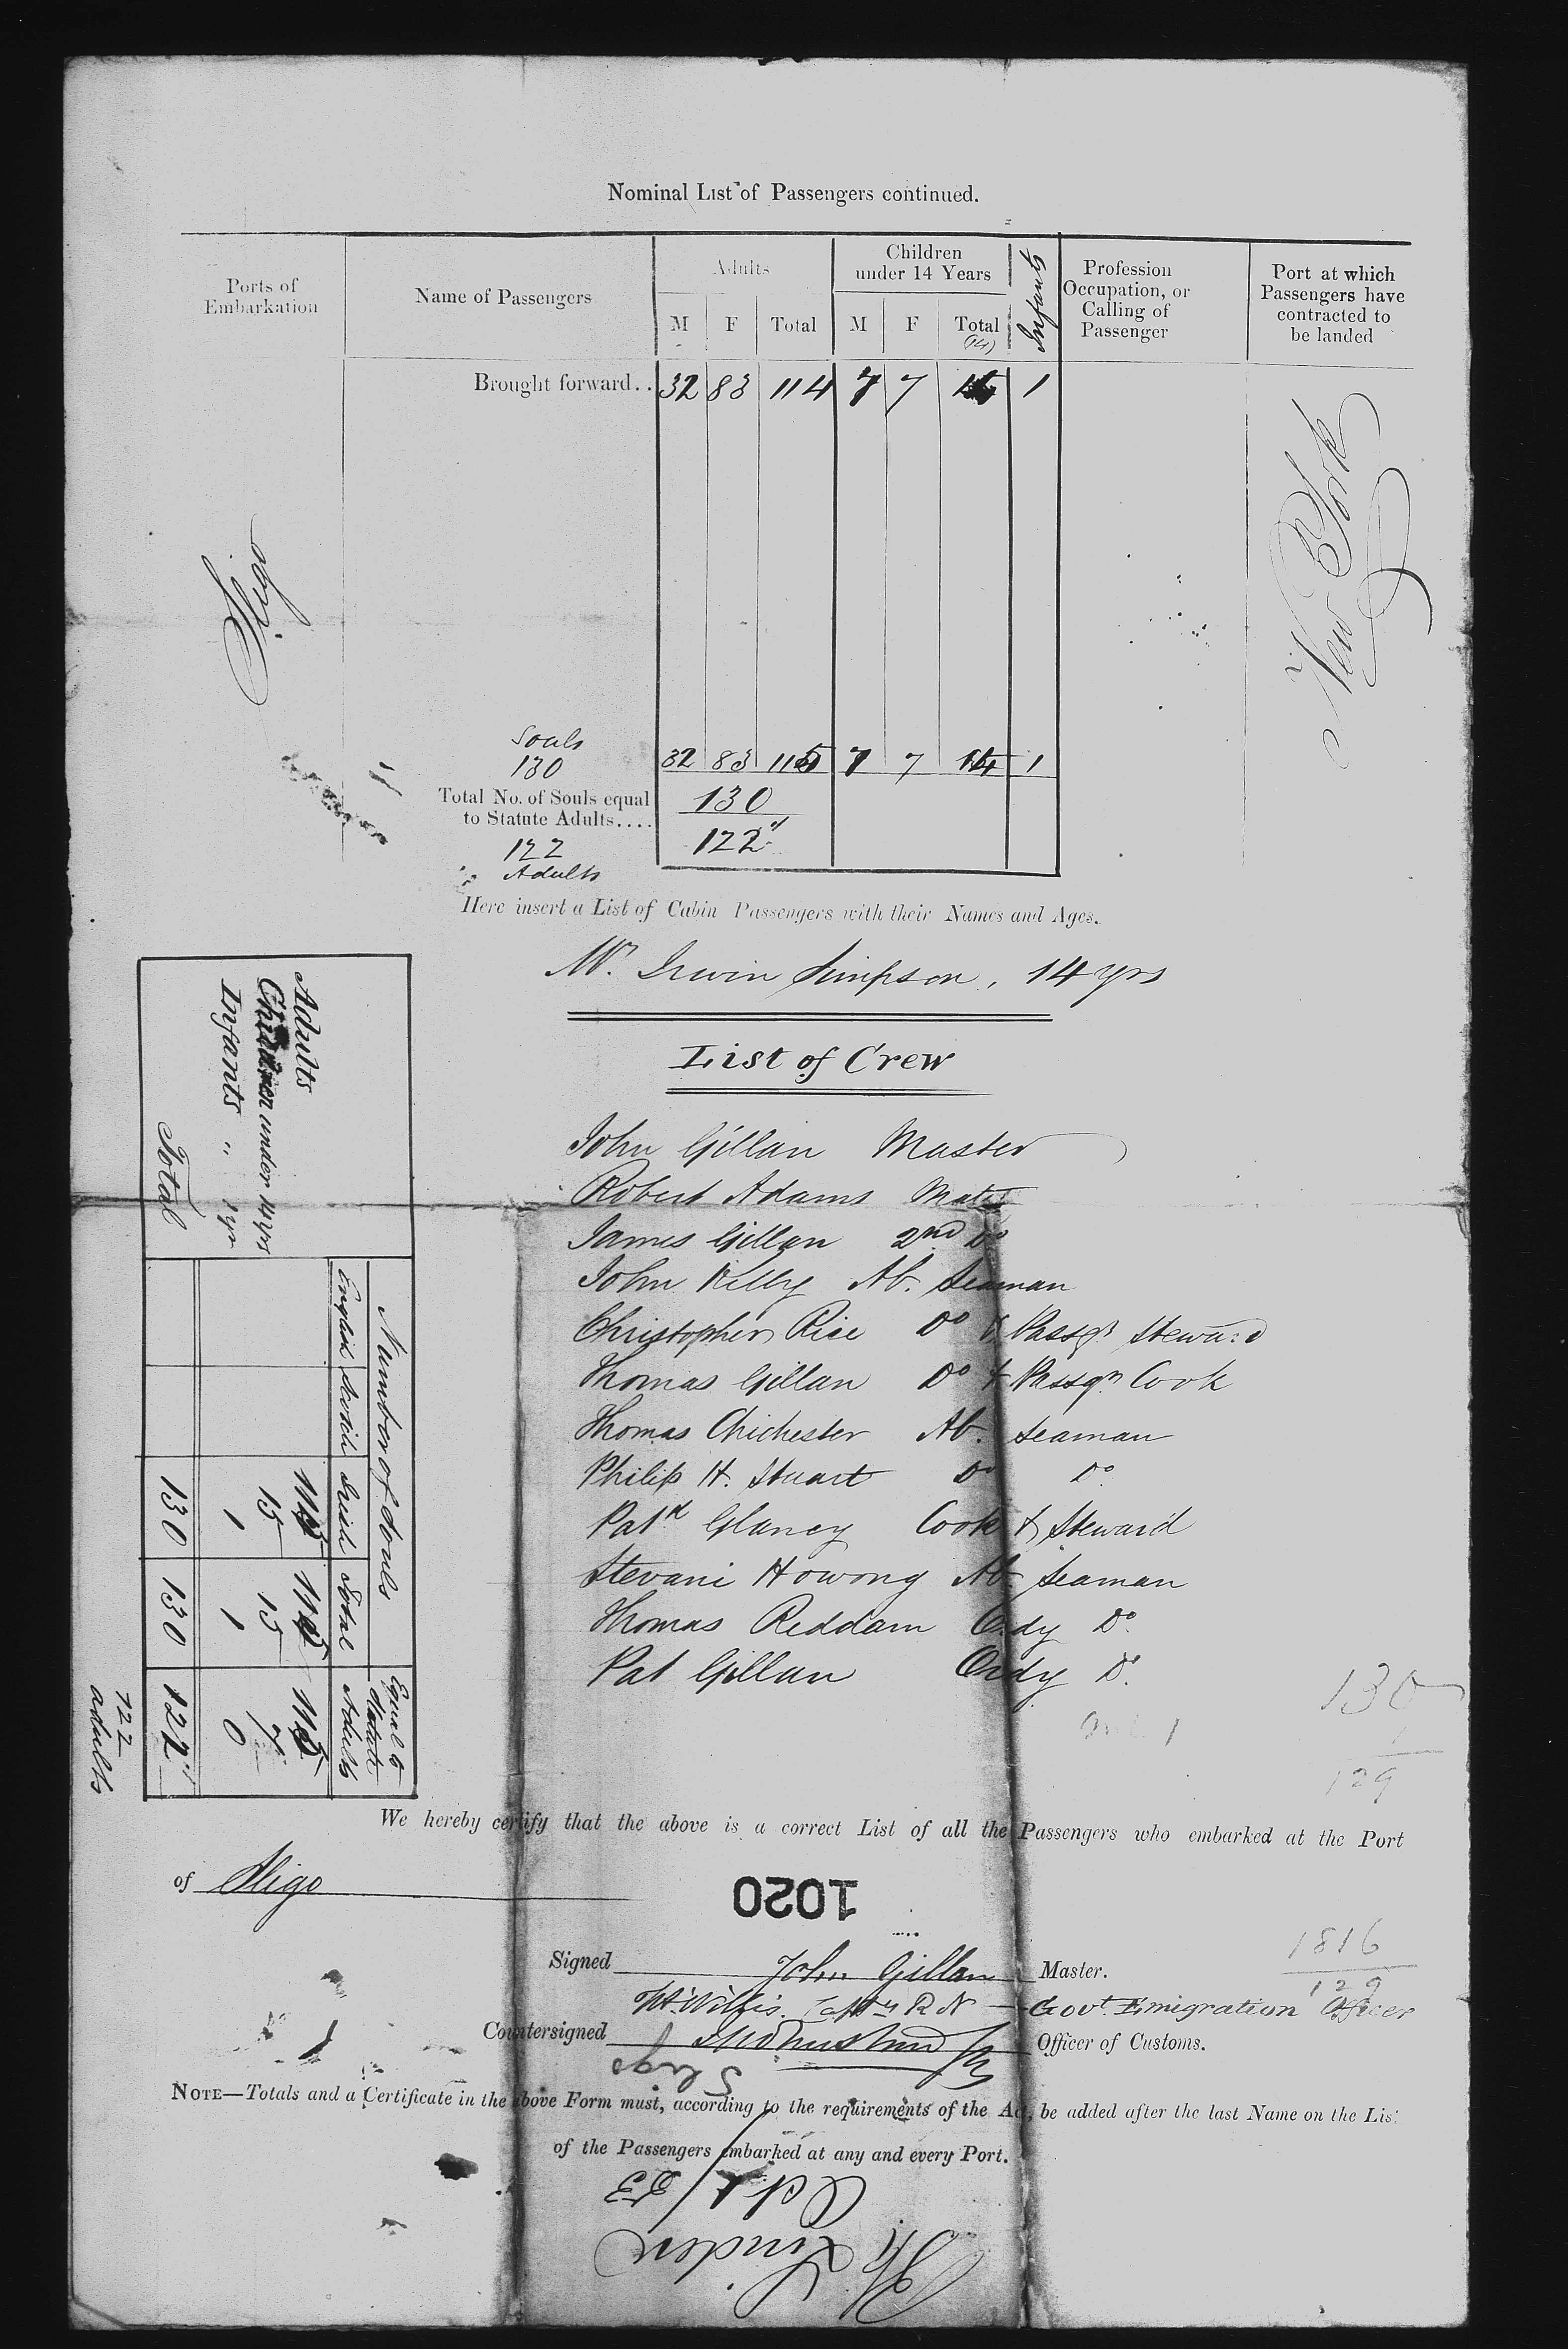 Nominal List of Passengers continued.
Ports of Embarkation
Name of Passengers
Adults
Children under 14 Years
Infants
Profession Occupation, or Calling of Passenger
Port at which Passengers have contracted to be landed
M F Total M F Total
Brought forward.. 32 83 114 7 7 1
Sligo
New York
Souls
130
32 83 115 7 7 14 1
Total No. of Souls equal to Statute Adults....
130
122
122
Adults
Here insert a List of Cabin Passengers with their Names and Ages.
Mr. Irwin Simpson, 14 yrs
List of Crew
John Gillan Master
Robert Adams Mate
James Gillan 2nd Do
John Kelly Ab. Seaman
Christopher Rice Do & Passgr Steward
Thomas Gillan Do & Passgr Cook
Thomas Chichester Ab. Seaman
Philip H. Stuart Do Do
Patk Glancy Cook & Steward
Stevani Howong Ab Seaman
Thomas Reddam Ordy Do
Pat Gillan Ordy Do
Number of Souls
Equal to Statute Adults
English Scotch Irish Total
Adults
Children under 14 yrs 15 15 7
Infants " 1 yr 1 1 0
Total 130 130 122
122 adults
130
1
129
We hereby certify that the above is a correct List of all the Passengers who embarked at the Port
of Sligo
1020
1816
129
Signed John Gillan Master.
R N Govt Emigration Officer
Countersigned Officer of Customs.
Sligo
NOTE—Totals and a Certificate in the above Form must, according to the requirements of the Act, be added after the last Name on the List
of the Passengers embarked at any and every Port.
Linden